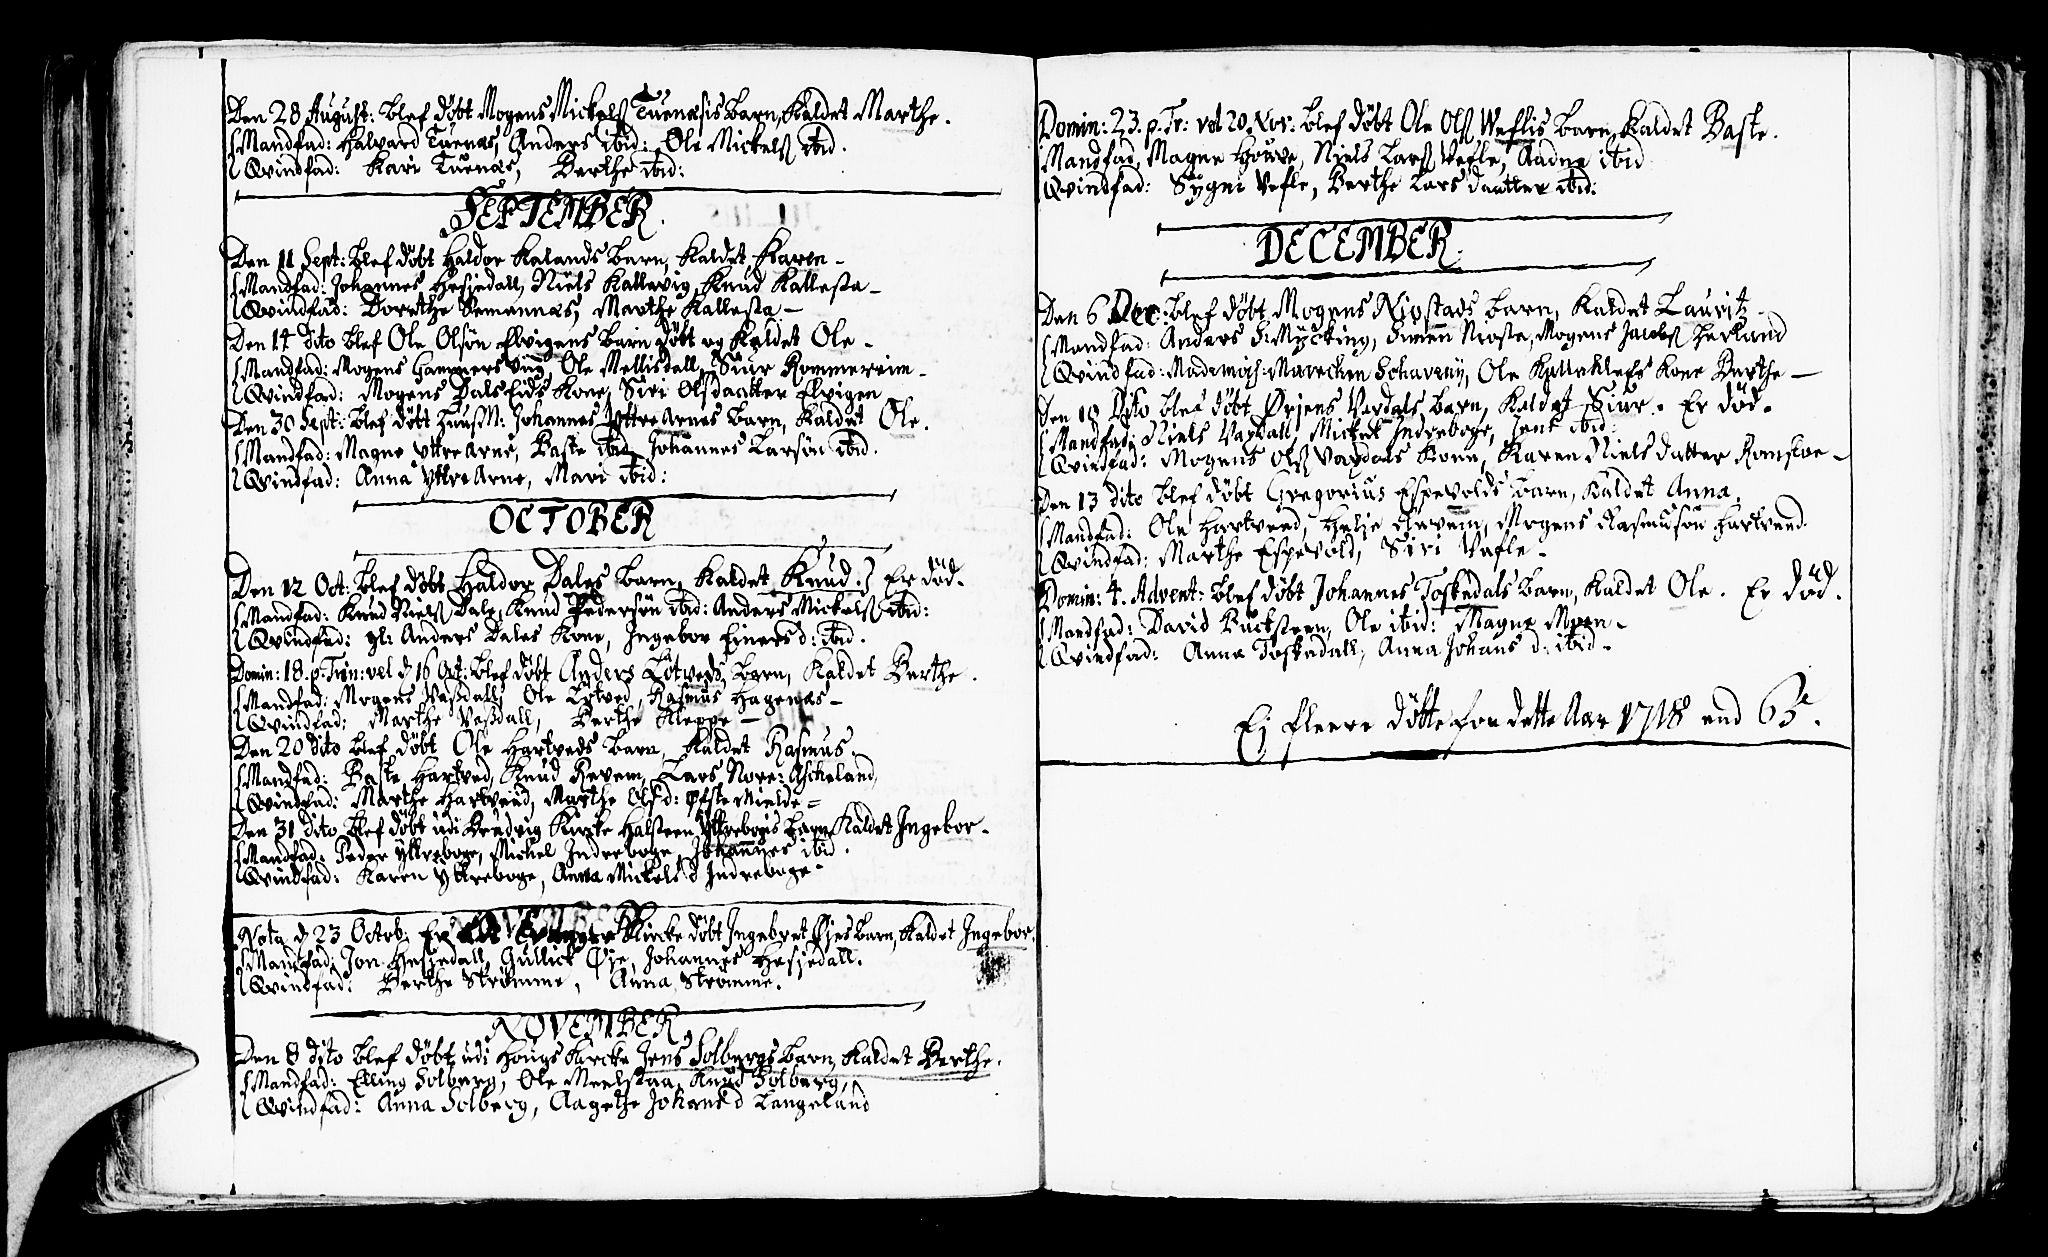 Den 28 August: blef døbt Mogens Mickelß Tuenæsis Barn, Kaldet Marthe.
Mandfad: Halvard Tuenæs, Anders ibid: Ole Mickelß ibid.
Qvindfad: Kari Tuenæs, Berthe ibid:
SEPTEMBER.
Den 11 Sept: blef døbt Haldor Kalands Barn, Kaldet Karen
Mandfad: Johannes Hesjedall, Niels Kallevig, Knud Kallesta
Qvindfad: Dorethe Remennæs, Marthe Kallesta
Den 14 dito blef Ole Olsøn Elvigens Barn døbt og Kaldet Ole
Mandfad: Mogens Hammersung, Ole Mellisdall, Siur Rommereim
Qvindfad: Mogens Dals Eids Kone, Siri Olsdaatter Elvigen
Den 30 Sept: blef døbt HuusM: Johannes Yttre Arnes Barn, Kaldet Ole.
Mandfad: Magne Yttre Arne, Baste ibid, Johannes Larsøn ibid.
Qvindfad: Anna Yttre Arne, Mari ibid:
OCTOBER
Den 12 Oct: blef døbt Haldor Dales Barn, Kaldet Knud. Er død.
Mandfad: Knud Nielß Dale, Knud Pedersøn ibid: Anders Mickelß ibid:
Qvindfad: gl: Anders Dales Kone, Ingebor Einersd: ibid.
Domin: 18. p. Trin: vel d 16 Oct: blef døbt Anders Løtveds Barn, Kaldet Berthe.
Mandfad: Mogens Vaßdall, Ole Løtved, Rasmus Hagenæs
Qvindfad: Marthe Vaßdall, Berthe Kleppe
Den 20 dito blef døbt Ole Hartveds Barn, Kaldet Rasmus.
Mandfad: Baste Hartved, Knud Revem, Lars Nore: Ascheland,
Qvindfad: Marthe Hartveed, Marthe Olsd: Øfste Mielde
Den 31 dito blef døbt udi Brudvig Kircke Halsteen Yttrebogis Barn Kaldet Ingebor.
Mandfad: Peder Yttreboge, Mickel Indreboge, Johannes ibid.
Qvindfad: Karen Yttreboge, Anna Mickelsd Indreboge
Nota d 23 Octob: Er Kircke døbt Ingebret Øjes Barn, Kaldet Ingebor.
Mandfad: Jon Hesjedall, Gullick Øje, Johannes Hesjedall.
Qvindfad: Berthe Strømme, Anna Strømme.
NOVEMBER
Den 8 dito blef døbt udi Hougs Kircke Jens Solbergs Barn, Kaldet Berthe.
Mandfad: Elling Solberg, Ole Meelstaa, Knud Solberg,
Qvindfad: Anna Solberg, Aagethe Johansd Langeland
Domin: 23. p. Tr: vel 20. Nov: blef døbt Ole Olß Weflis Barn, Kaldet Baste.
Mandfad, Magne Houve, Niels Larß Vefle, Aadne ibid
Qvindfad: Sygni Vefle, Berthe Lars daatter ibid:
DECEMBER.
Den 6 Dec: blef døbt Mogens Niostads Barn, Kaldet Lauritz
Mandfad: Anders Mycking, Simen Nioste, Mogens Jacobß Herland
Qvindfad: Mademois: Marechen Schaveny, Ole Kalleklefs Kone Berthe
Den 10 Dito blef døbt Ørjens Vardals Barn, Kaldet Siur. Er død.
Mandfad: Niels Vardall, Mickel Indreboge, Jens ibid:
Qvindfad: Mogens Olß Vardals Kone, Karen Niels datter Romsloe
Den 13 dito blef døbt Gregorius Espevolds Barn, Kaldet Anna.
Mandfad: Ole Hartveed, Helje Revem, Mogens Rasmusøn Hartveed.
Qvindfad: Marthe Espevold, Siri Vafle
Domin: 4. Advent: blef døbt Johannes Toskedals Barn, Kaldet Ole. Er død.
Mandfad: David Bucksteen, Ole ibid: Magne Moen
Qvindfad: Anna Toskedall, Anna Johans d: ibid.
Ej fleere døbte for dette Aar 1718 end 65.